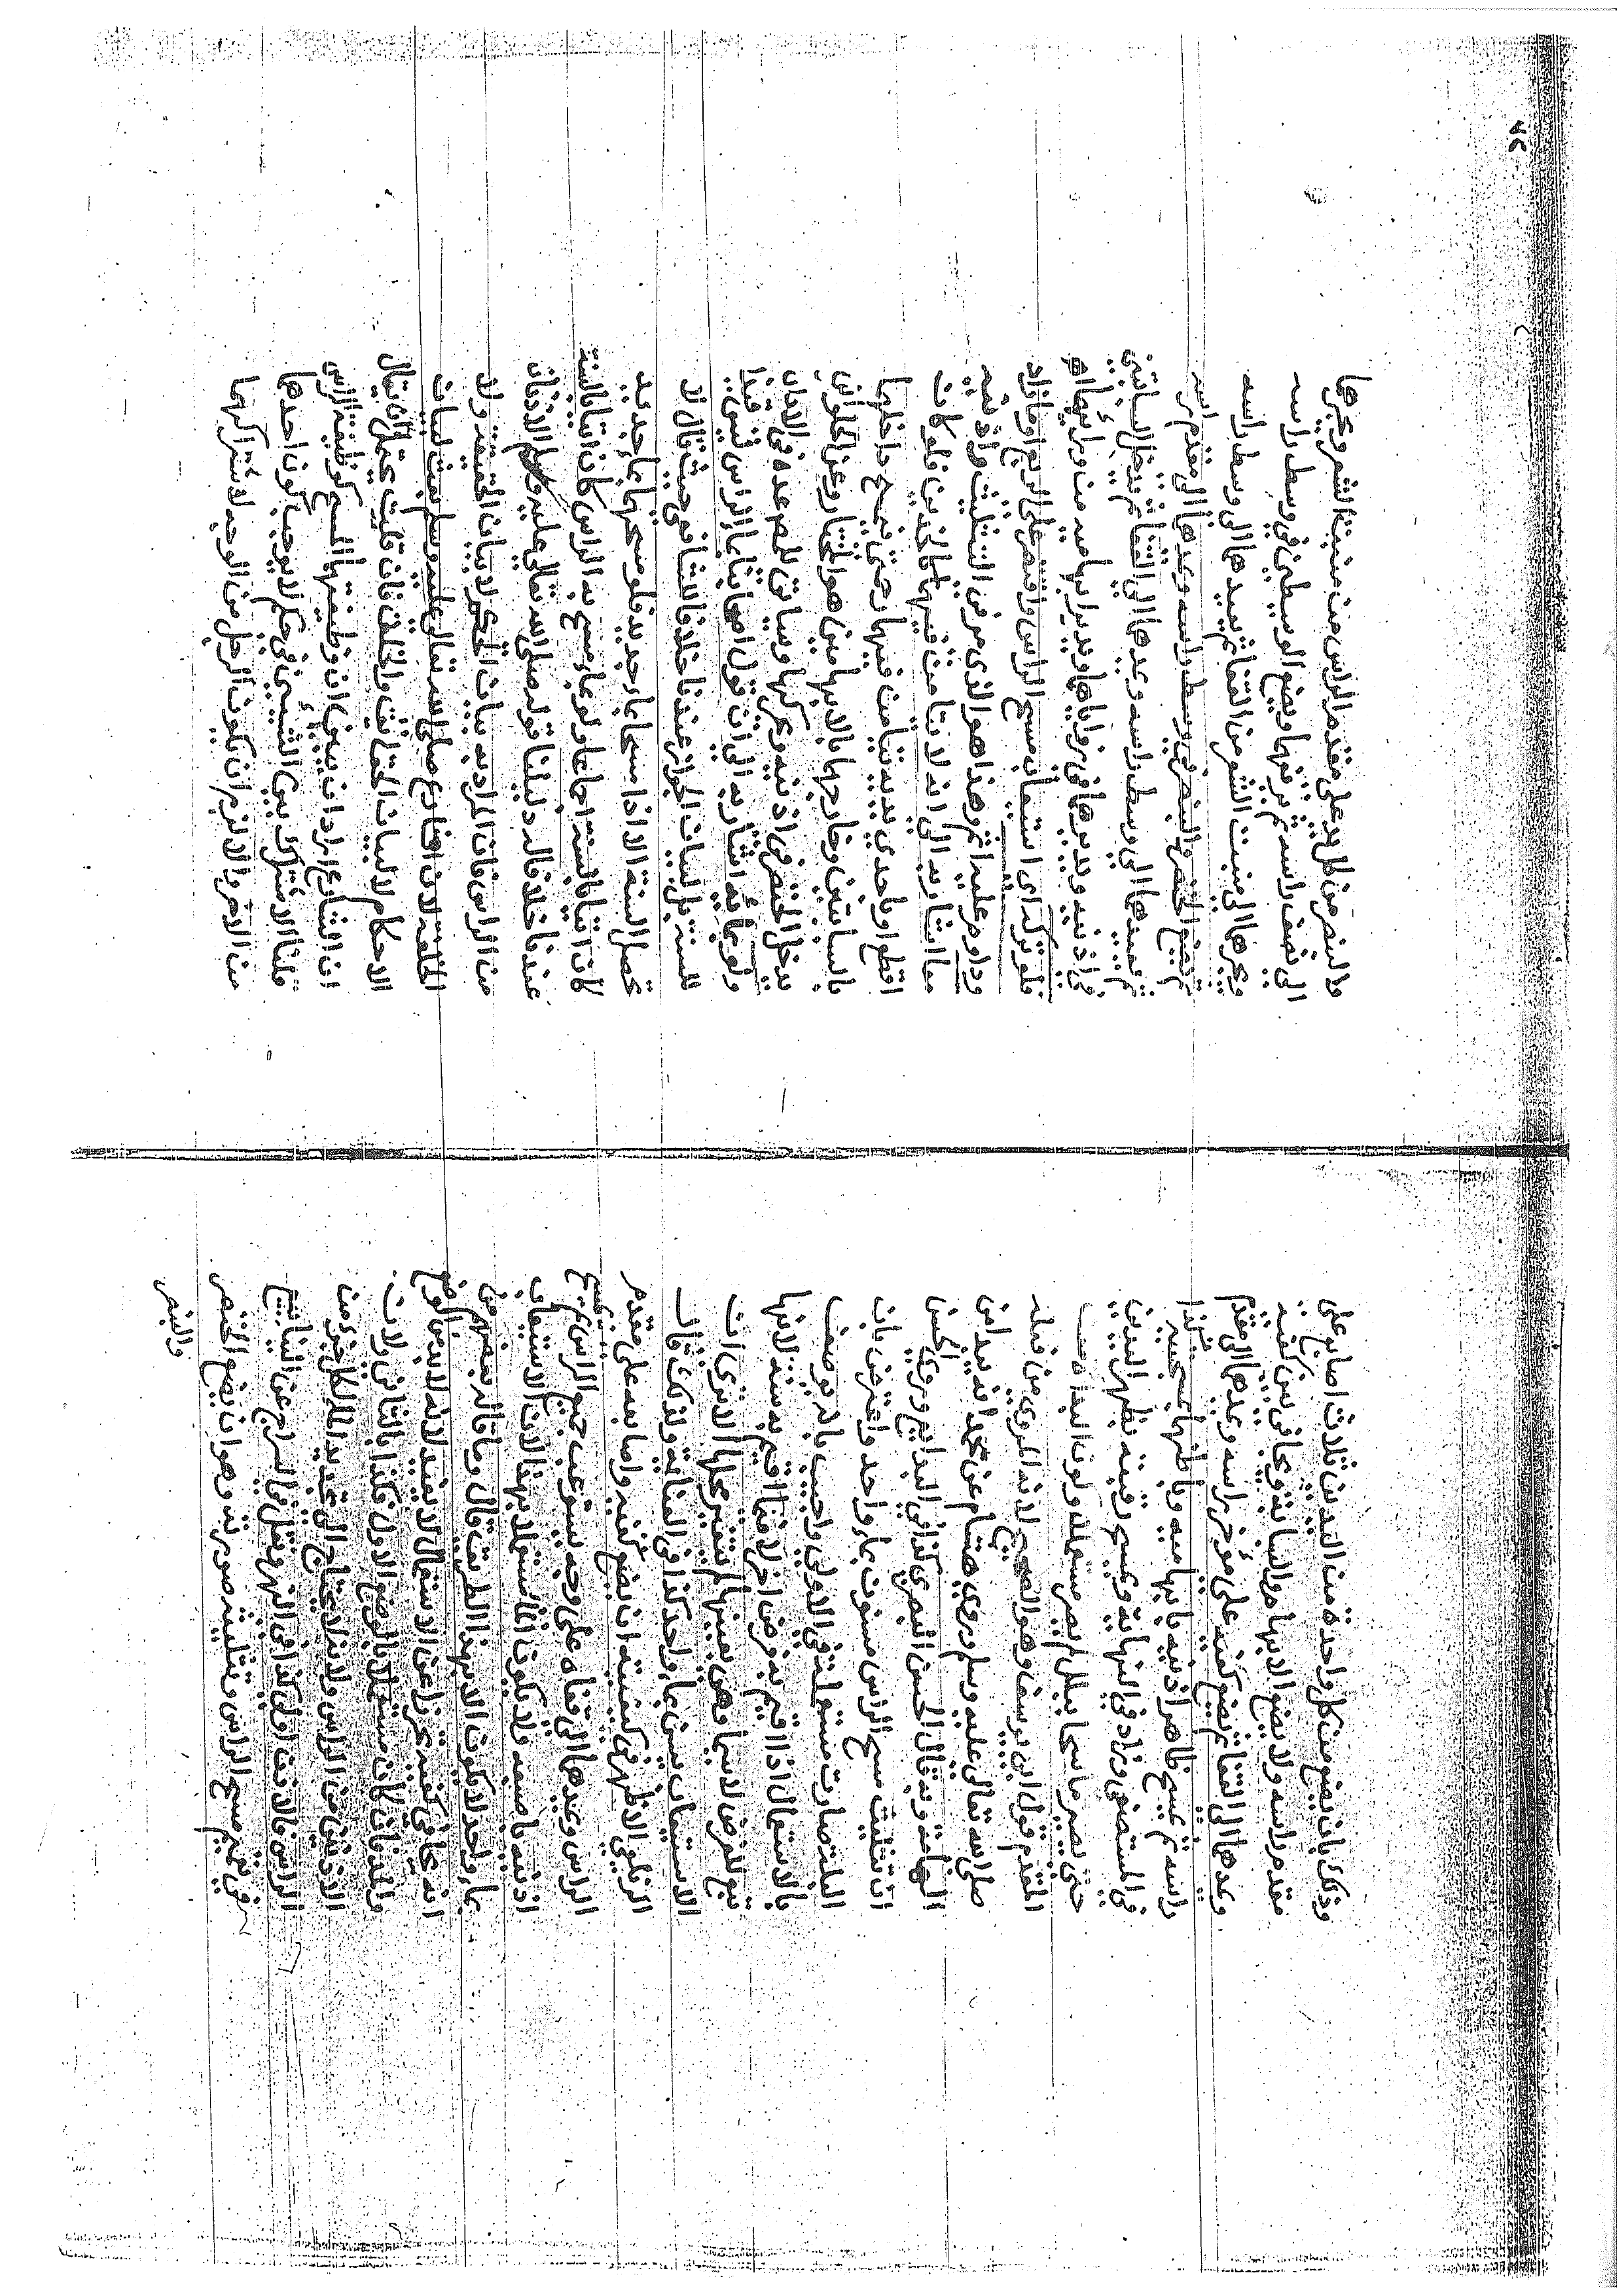 وذلك بان يضع من كل واحدة من اليدين ثلاث اصابع على
مقدم راسه ولا يضع الابهام والسبابة ويجافي بين كفيه
وعدهما الى القفا ثم يضع كفيه على مؤخر راسه وعدهما الى مقدم
راسه ثم عسح ظاهر اذنيه بابهاميه وباطنهما بمسبحتيه كذا
في المستصفى وزاد في النهاية وعسح رقبته بظهر اليدين
حتى يصير ماسحا ببلل لم يصر مستعملا ولون البداءة من
المقدم قول ابن يوسف وهو الصحيح لانه المروي من فعله
صلى الله تعالى عليه وسلم وروى هشام عن محمد انه يبدا من
الهامة وبه قال الحسن البصري كذا في البدايع وروي الحسن
ان تثليث مسح الراس مسنون بماء واحد واعترض بان
البلة صارت مستعملة في الاولى واجيب بانه يوصف
بالاستعمال اذا اقيم به فرض اخر لا فيما اقيم به سنة لانها
تبع للفرض لا سيما وهي بعينها لم يتغير محلها الا ترى ان
الاستيعاب يسن بماء واحد كذا في العناية ولذلك قال
الزيلعي الاظهر في كيفيته ان يضع كفيه واصابعه على مقدم
الراس وعدهما الى قفاه على وجه يستوعب جميع الراس ثم يمسح
اذنيه باصبعيه ولا يكون الماء مستعملا بهذا لان الاستيعاب
بماء واحد لا يكون الا بهذا الطريق قال وما قاله بعضهم من
انه يجافي كفيه تحرزا عن الاستعمال لا يفيد لانه لا بد من الوضع
والمد فان كان مستعملا بالوضع الاول فكذا بالثاني ولان
الاذنين من الراس ولانه لا يحتاج الى تجديد الماء لكل جزء من
الراس فالاذن اولى كذا في النهر ونقل في السراج عن الينابيع
في تعميم مسح الراس وتثليثه صورته وهو ان يضع الخنصر
والبنصر
والبنصر من كل يد على مقدم الراس من منبت الشعر ويجرها
الى نصف راسه ثم يرفعها ويضع الوسطيين في وسط راسه
ويجرها الى منبت الشعر من القفا ثم يعيدها الى وسط راسه
ثم يضع الخنصر والبنصر في وسط راسه وعدهما الى مقدم راسه
ثم يعيدهما الى وسط راسه وعيدهما الى القفا ثم يدخل السبابتين
في اذنيه ويديرهما في زواياها ويدير ابهاميه من وراء اذنيه
فلو ترك اي استيعاب مسح الراس واقتصر على الربع او ما زاد
وداوم عليه اثم وهذا هو الذي مر في التثليث واذنيه
معا اشار به الى انه لا تيامن فيهما كالخدين فلو كان
اقطع او باحدى يديه تيامن فيهما حتى فيمسح داخلهما
بالسبابتين وخارجهما بالابهامين هو المختار وعن الحلواني
يدخل الخنصر في اذنيه ويحركهما وسياتي للمص عده في الاداب
ولو بمائه اشار به الى ان قول امهاتنا بماء الراس ليس قيدا
للسنة بل لبيان الجواز عندنا خلافا للشافعي حيث قال لا
تحصل السنة الا اذا مسحهما بماء جديد فلو مسحهما بماء جديد
كان اتيا بالسنة اجماعا ولو بماء مسح به الراس كان اتيا بالسنة
عندنا خلافا له دليلنا قوله صلى الله تعالى عليه وسلم الاذنان
من الراس فان المراد به بيان الحكم لا بيان الحقيقة ولا
الخلقة لان الشارع صلى الله تعالى عليه وسلم بعث لبيان
الاحكام لا لبيان الحقايق والخلق فان قلت يحتمل ان يقال
ان الشارع اراد ان يبين ان وظيفتهما المسح كوظيفة الراس
قلنا الاشتراك بين الشيئين في حكم لا يوجب كون احدهما
من الاخر والا لزم ان يكون الرجل من الوجه لاشتراكهما